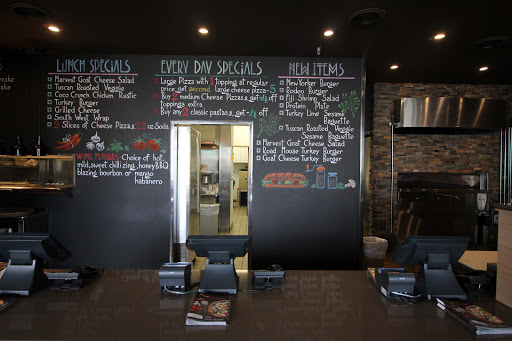 LUNCH SPECIALS
Harvest Goat Cheese Salad
Tuscan Roasted Veggie
Coco Crunch Chicken Rustic
Turkey Burger
Grilled Cheese
South West Wrap
2 Slices of Cheese Pizza & oz Soda
WING FLAVORS Choice of hot,
mild, sweet chili, zing, honey BBQ
blazing bourbon or mango
habanero
EVERY DAY SPECIALS
Large Pizza with 1 topping at regular
price, get second large cheese pizza-5
Buy 2 medium Cheese Pizzas & get off
toppings extra
Buy any 2 classic pastas & get off
NEW ITEMS
New Yorker Burger
Rodeo Burger
Fiji Shrimp Salad
Protein Plate
Turkey Lime Sesame
Baguette
Tuscan Roasted Veggie
Sesame Baguette
Harvest Goat Cheese Salad
Road House Turkey Burger
Goat Cheese Turkey Burger